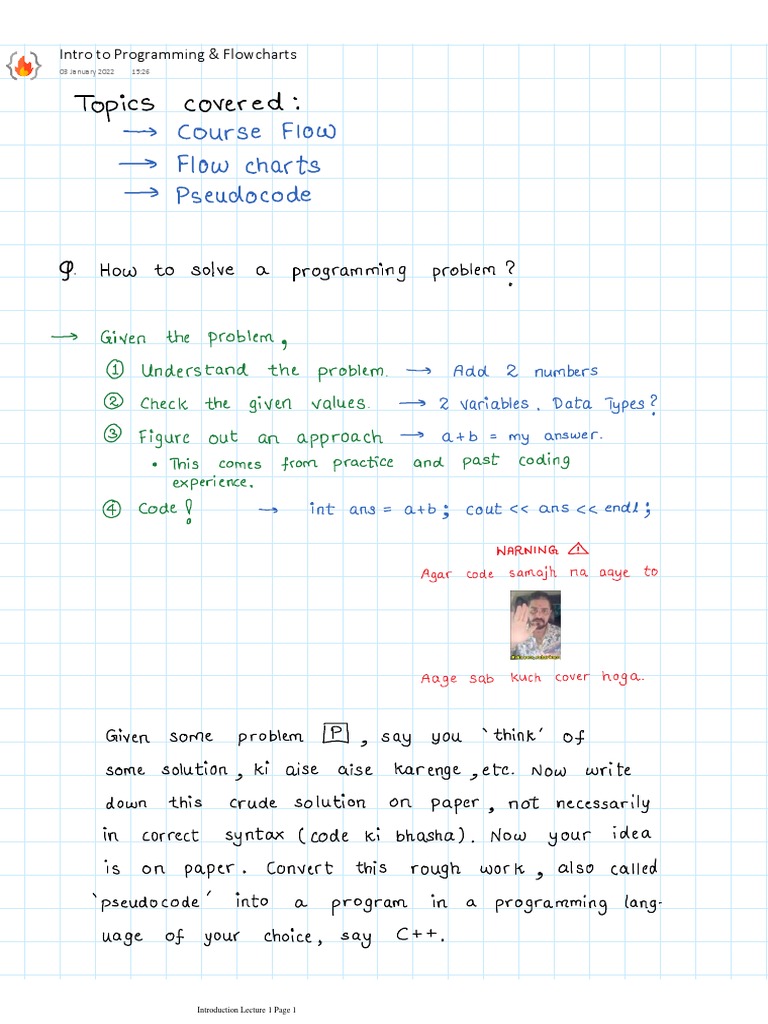 Intro to Programming & Flowcharts
08 January 2022 15:26
Topics covered:
→ Course Flow
→ Flow charts
→ Pseudocode
Q. How to solve a programming problem?
→ Given the problem,
① Understand the problem. → Add 2 numbers
② Check the given values. → 2 variables. Data Types?
③ Figure out an approach → a+b = my answer.
• This comes from practice and past coding
experience.
④ Code! → int ans = a+b; cout << ans << endl;
WARNING ⚠
Agar code samajh na aaye to
Aage sab kuch cover hoga.
Given some problem P, say you 'think' of
some solution, ki aise aise karenge, etc. Now write
down this crude solution on paper, not necessarily
in correct syntax (code ki bhasha). Now your idea
is on paper. Convert this rough work, also called
'pseudocode' into a program in a programming lang-
uage of your choice, say C++.
Introduction Lecture 1 Page 1